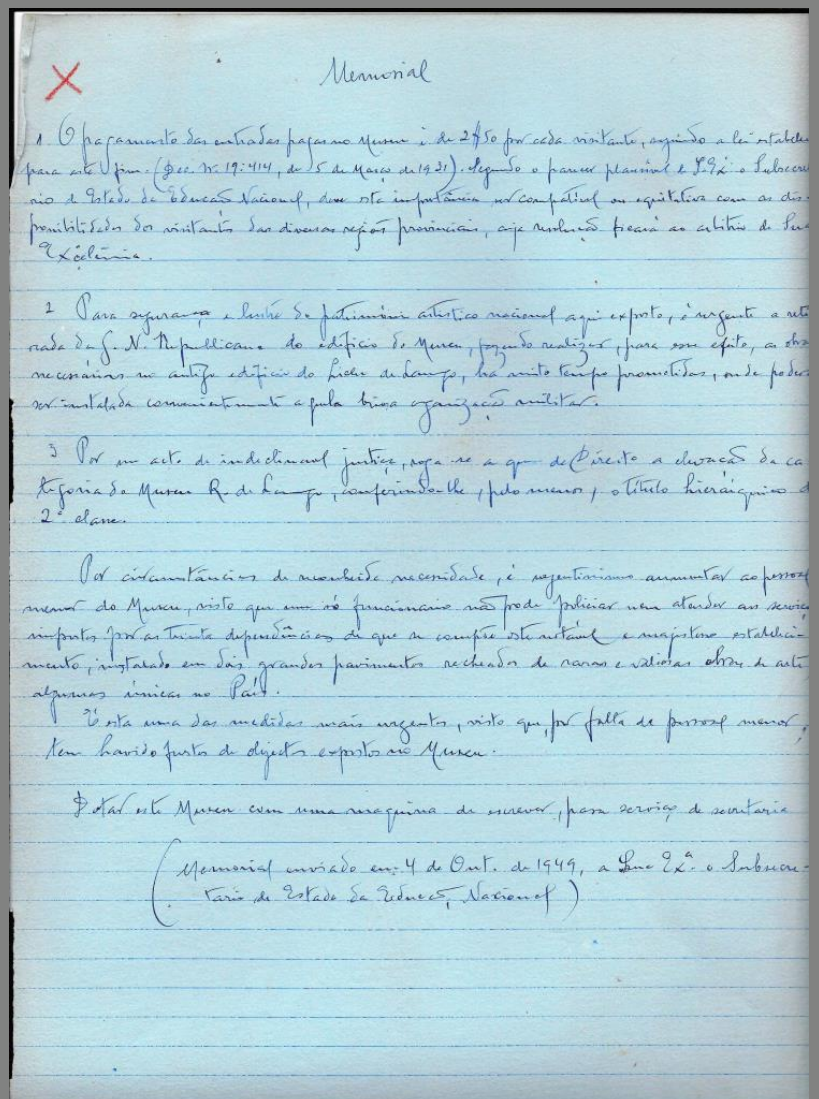 Memorial
1 O pagamento das entradas pagas no Museu é de 2$50 por cada visitante, segundo a lei estabele
para este fim. (Dec. Nº 19:414, de 5 de Março de 1931). Segundo o parecer plausível e S. Exª o Subsecre
rio d Estado da Educação Nacional, deve esta importância ser compatível ou equitativa com as dis-
ponibilidades dos visitantes das diversas regiões provinciais, cuja resolução ficará ao arbítrio de Sua
Excelência.
2 Para segurança e lustre do património artístico nacional aqui exposto, é urgente a reti
rada da G. N. Republicana do edifício do Museu, fazendo realizar, para esse efeito, as obra
necessárias no antigo edifício do Liceu de Lamego, há muito tempo prometidas, onde poder
ser instalada convenientemente aquela briosa organização militar.
3 Por um acto de indeclinavel justiça, roga-se a quem de Direito a elevação da ca
tegoria do Museu R. de Lamego, conferindo-lhe, pelo menos, o título hierárquico d
2ª classe.
Por circunstâncias de reconhecida necessidade, é urgentissimo aumentar ao pessoal
menor do Museu, visto que um só funcionario não pode policiar nem atender aos serviço
impostos por as trinta dependências de que se compõe este notável e majestoso estabeleci-
mento, instalado em dois grandes pavimentos recheados de raras e valiosas obras de arte
algumas únicas no País.
É esta uma das medidas mais urgentes, visto que, por falta de pessoal menor,
tem havido furtos de objectos expostos no Museu.
Dotar este Museu com uma maquina de escrever, para serviço de secretaria
(Memorial enviado em: 4 de Out. de 1949, a Sua Exª. o Subsecre-
tario de Estado da Educação Nacional)